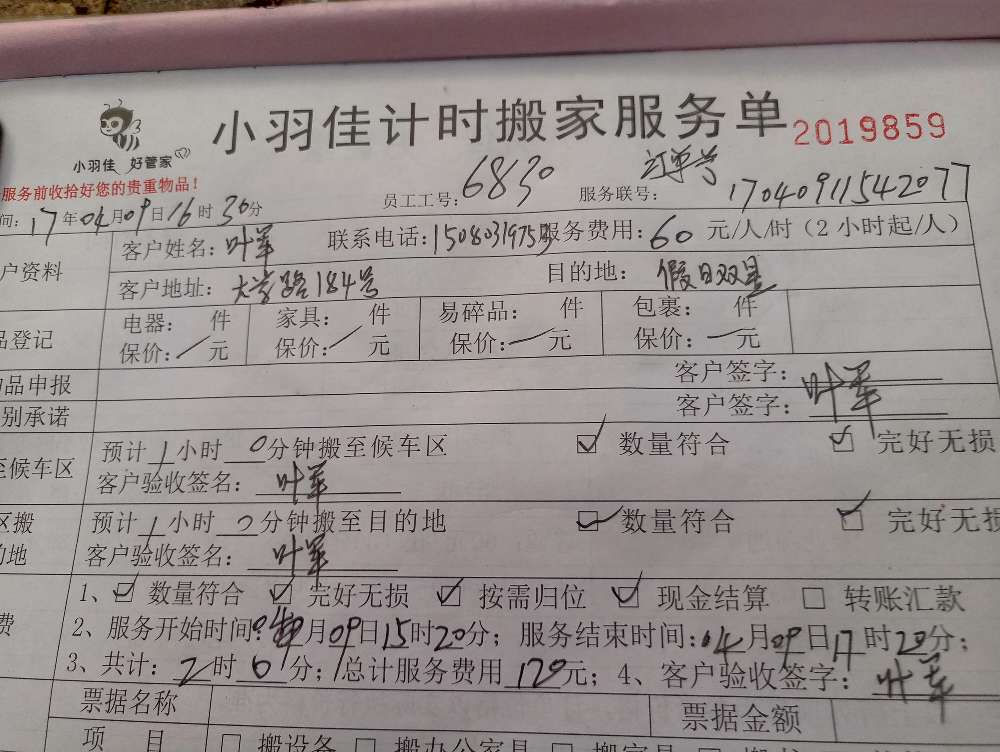 小羽佳计时搬家服务单 2019859
小羽佳 好管家
服务前收拾好您的贵重物品!
员工工号: 6830 服务联号: 订单号 17040911542077
间: 17年04月09日16时30分
户资料 客户姓名: 叶军 联系电话: 15080319753 服务费用: 60 元/人/时(2小时起/人)
客户地址: 大学路184号 目的地: 假日双星
品登记 电器: 件 家具: 件 易碎品: 件 包裹: 件
保价: / 元 保价: / 元 保价: 一 元 保价: 一 元
品申报 客户签字:
别承诺 客户签字: 叶军
至候车区 预计 1 小时 0 分钟搬至候车区 ☑ 数量符合 ☑ 完好无损
客户验收签名: 叶军
区搬 预计 1 小时 0 分钟搬至目的地 ☑ 数量符合 ☑ 完好无损
的地 客户验收签名: 叶军
费 1、☑ 数量符合 ☑ 完好无损 ☑ 按需归位 ☑ 现金结算 □ 转账汇款
2、服务开始时间: 04月09日15时20分; 服务结束时间: 04月09日17时20分;
3、共计: 2时0分; 总计服务费用 120元; 4、客户验收签字: 叶军
票据名称 票据金额
项 目 □ 搬设备 □ 搬办公家具 □ 搬家具